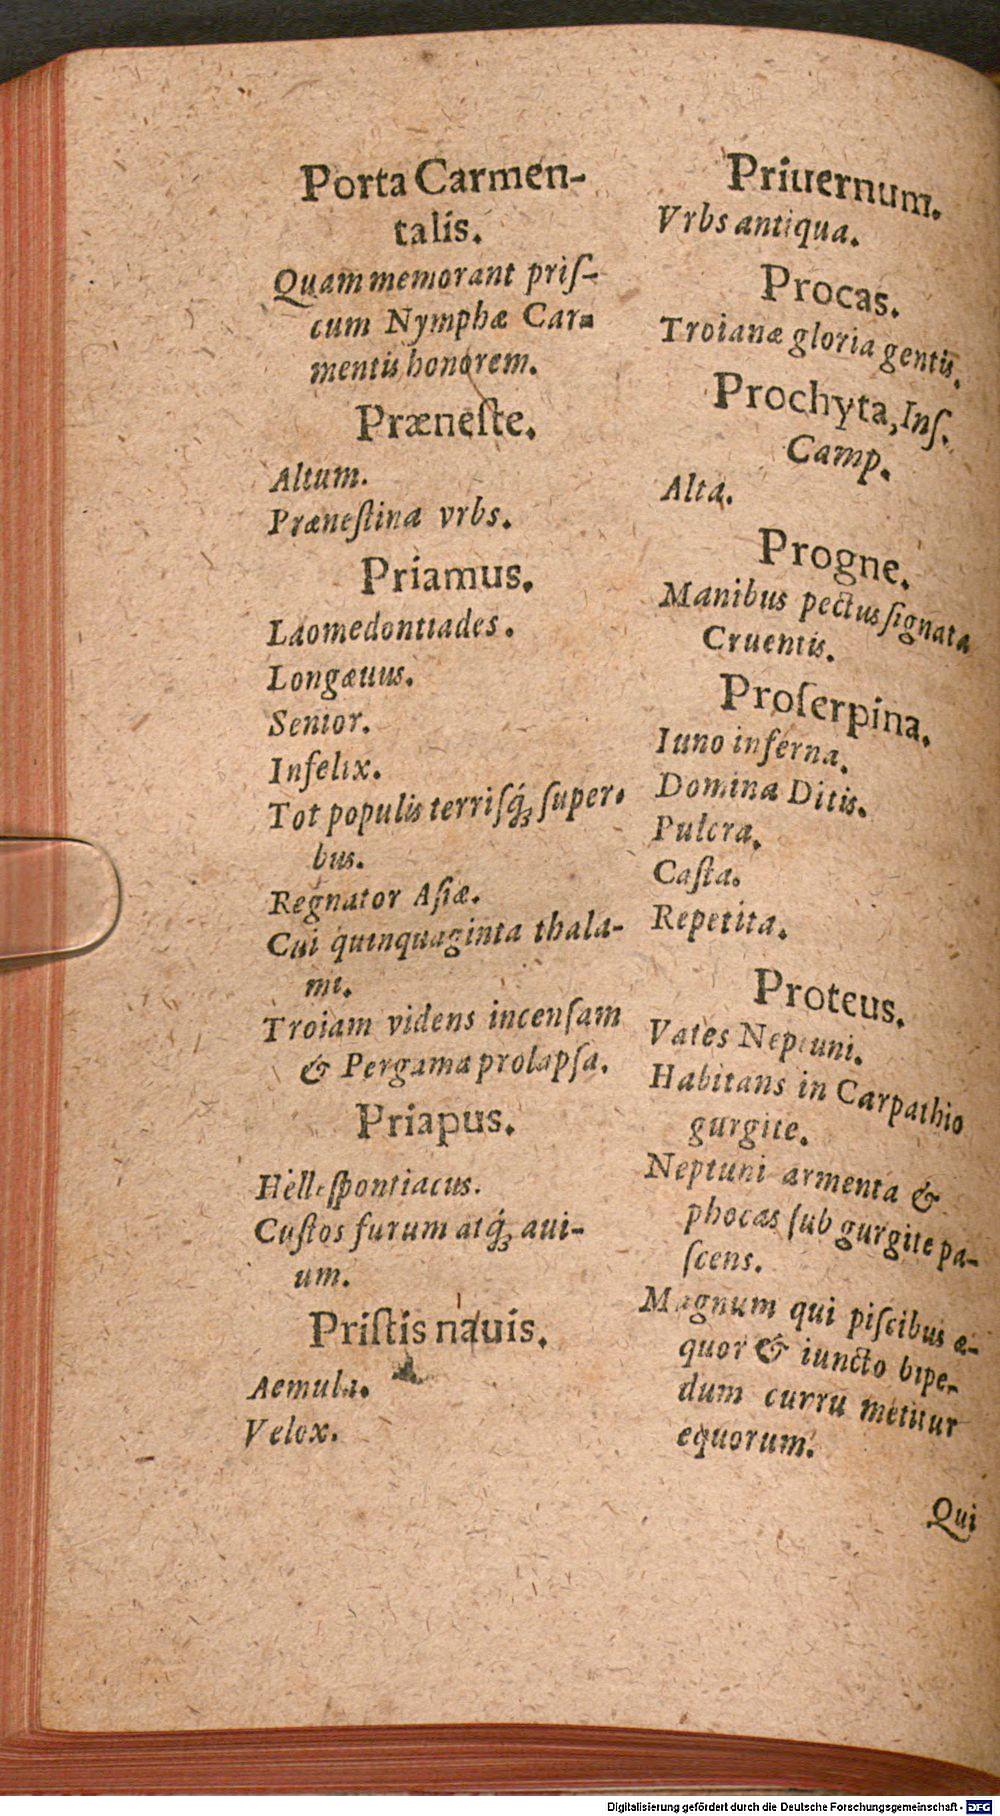 Porta Carmen-
talis.
Quam memorant priſ-
cum Nymphæ Car-
mentis honorem.
Præneſte.
Altum.
Præneſtina vrbs.
Priamus.
Laomedontiades.
Longæuus.
Senior.
Infelix.
Tot populis terriſq́; ſuper-
bus.
Regnator Aſiæ.
Cui quinquaginta thala-
mi.
Troiam videns incenſam
& Pergama prolapſa.
Priapus.
Helleſpontiacus.
Cuſtos furum atq́; aui-
um.
Priſtis nauis.
Aemula.
Velox.
Priuernum.
Vrbs antiqua.
Procas.
Troianæ gloria gentis.
Prochyta, Inſ.
Camp.
Alta.
Progne.
Manibus pectus ſignata
Cruentis.
Proſerpina.
Iuno inferna.
Domina Ditis.
Pulcra.
Caſta.
Repetita.
Proteus.
Vates Neptuni.
Habitans in Carpathio
gurgite.
Neptuni armenta &
phocas ſub gurgite pa-
ſcens.
Magnum qui piſcibus æ-
quor & iuncto bipe-
dum curru metitur
equorum.
Qui
Digitalisierung gefördert durch die Deutsche Forschungsgemeinschaft - DFG